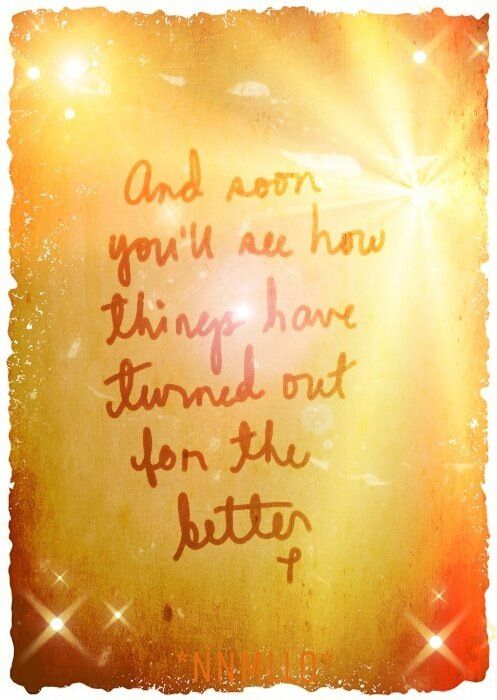 And soon
you'll see how
things have
turned out
for the
better